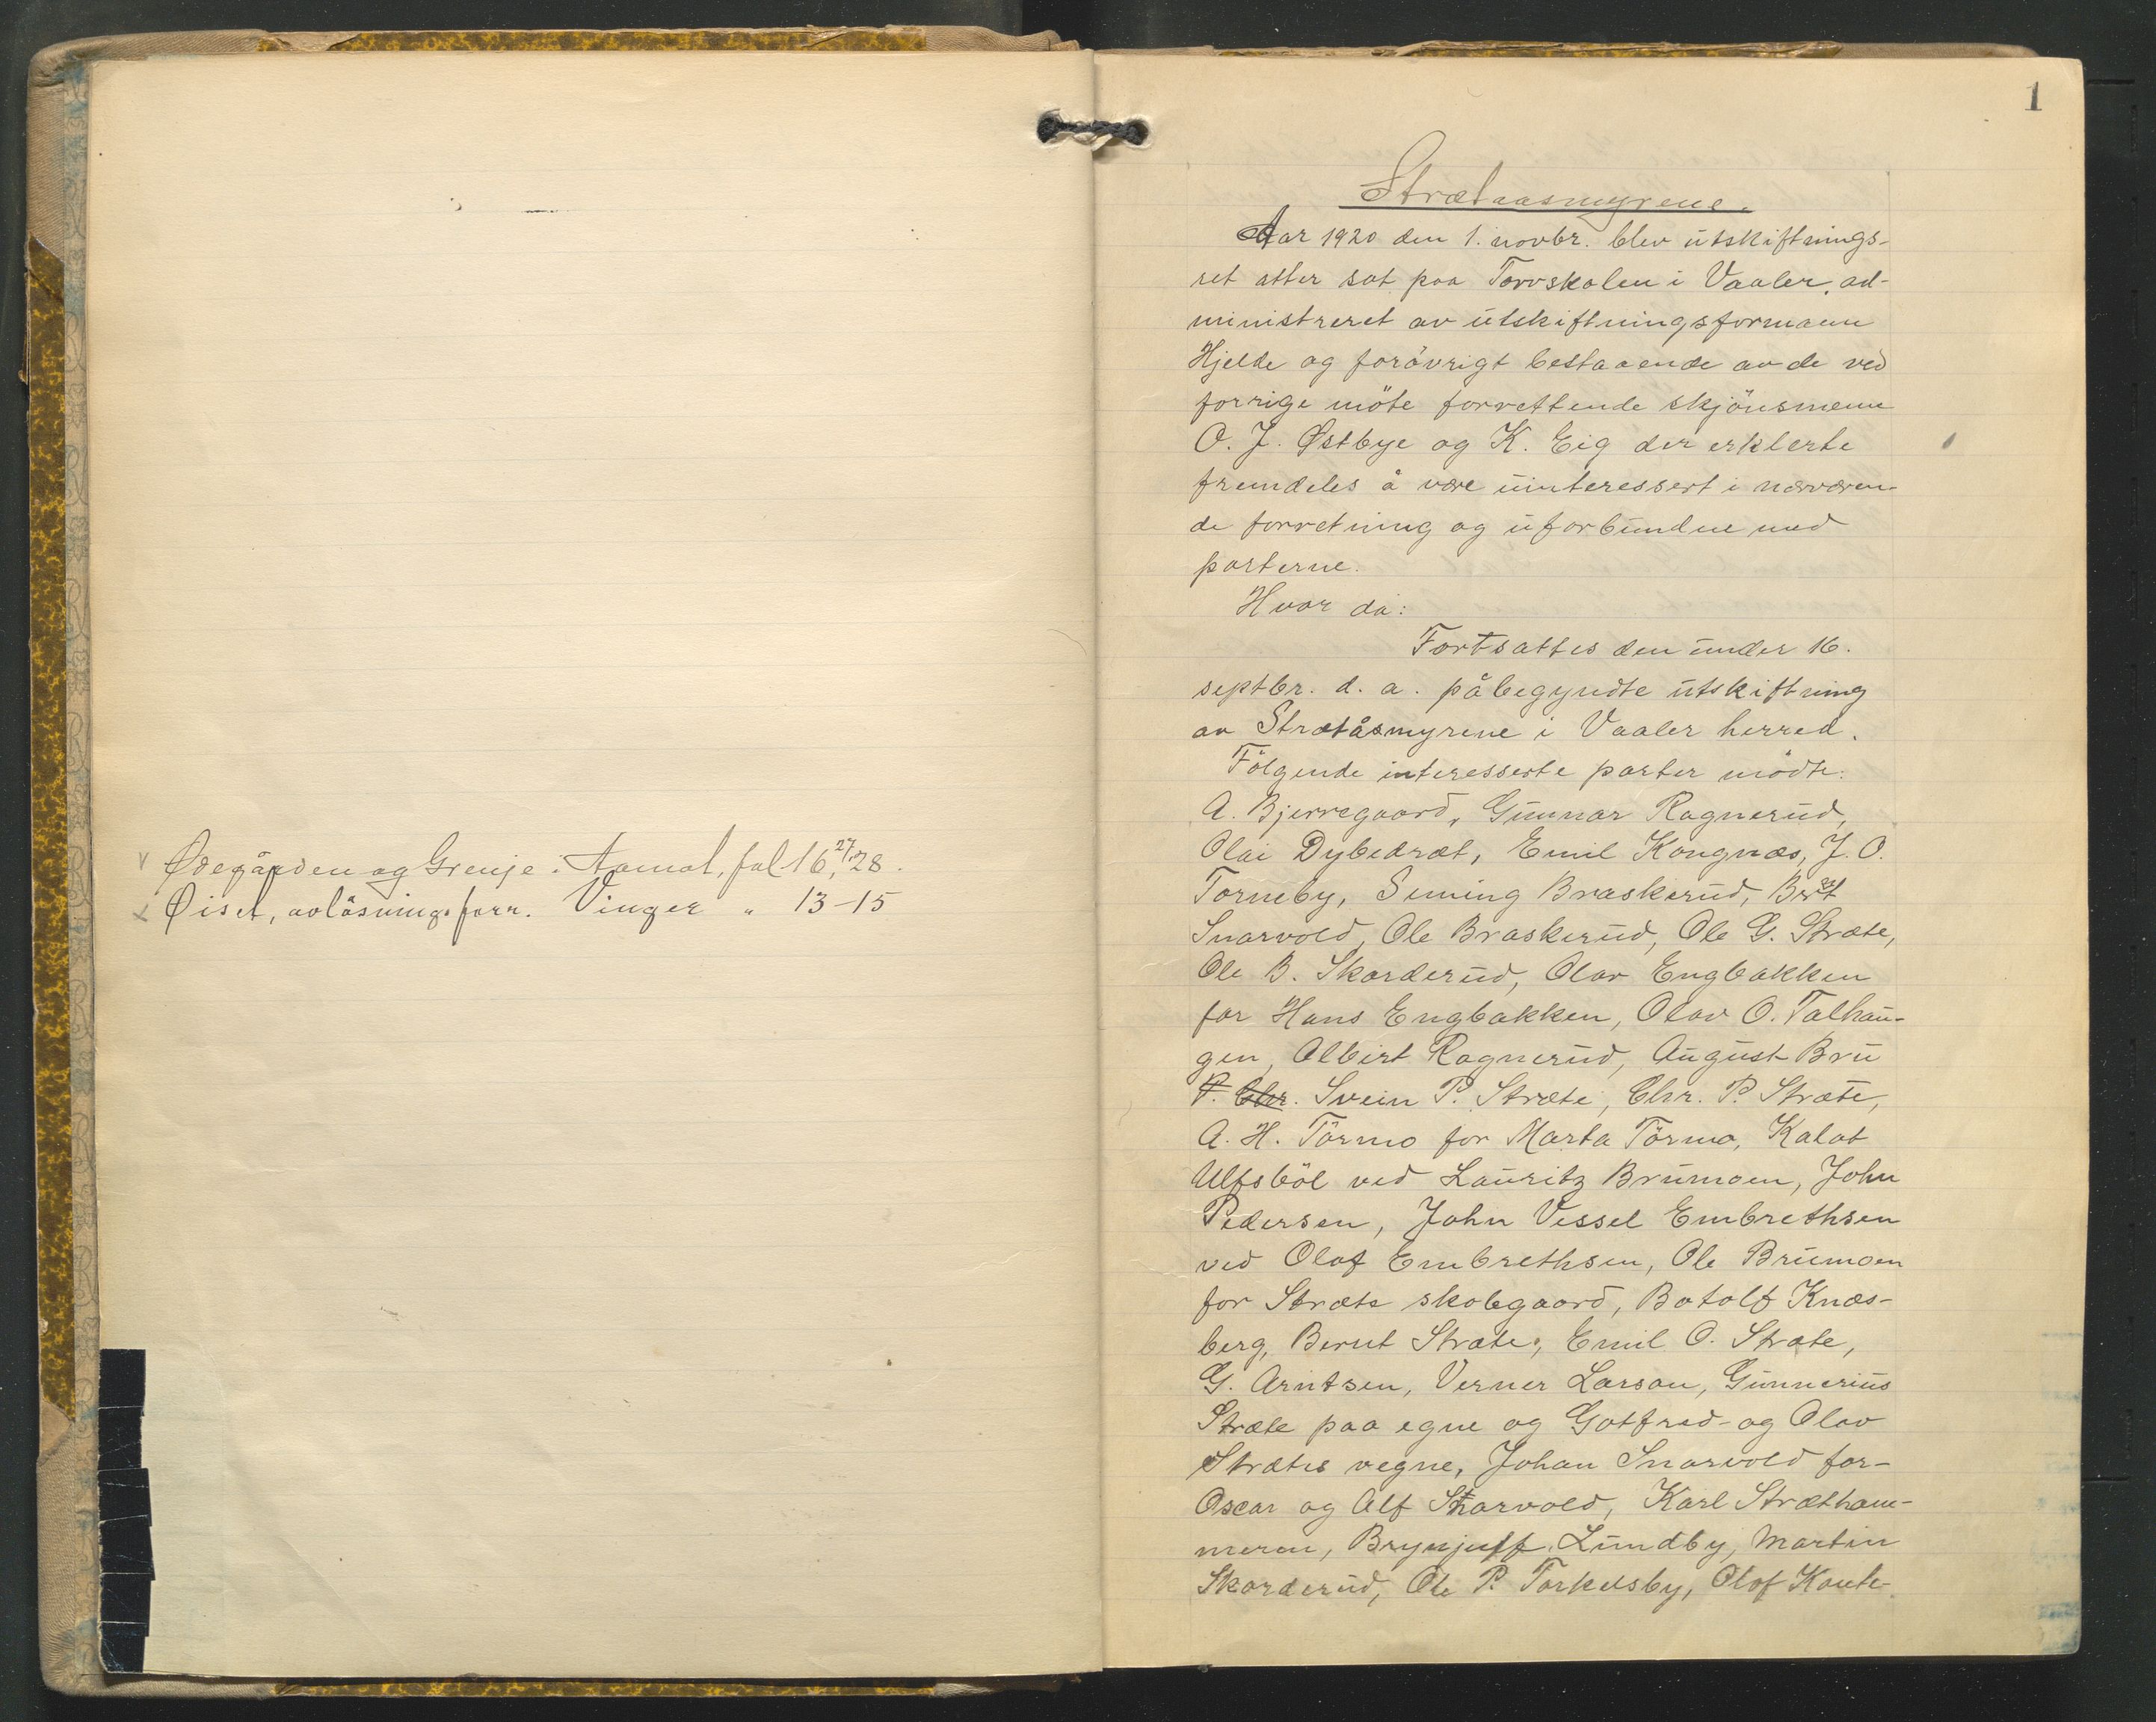 Ødegården og Grenje i Aamot, fol 16, 27, 28.
Öiset, avlösningsforr. Vinger " 13-15
1
Strætaasmyrene.
Aar 1920 den 1. novbr. blev utskiftnings-
ret atter sat paa Torvskolen i Vaaler, ad-
ministreret av utskiftningsformann
Hjelde og forövrigt bestaaende av de ved
forrige möte forrettende skjönsmenn
O. J. Østbye og K. Eig der erklærte
fremdeles å være uinteressert i nærværen-
de forretning og uforbundne med
parterne.
Hvor da:
Fortsattes den under 16.
septbr. d. a. påbegyndte utskiftning
av Strætåsmyrene i Vaaler herred.
Fölgende interesserte parter mödte:
A. Bjerregaard, Gunnar Ragnerud,
Olai Dybedræt, Emil Kongnæs, J. O.
Torneby, Seming Braskerud, Bret
Snarvold, Ole Braskerud, Ole G. Stræte,
Ole B. Skarderud, Olav Engbakken
for Hans Engbakken, Olav O. Talhau-
gen, Albert Ragnerud, August Bru
P. Chr. Svein P. Stræte, Chr. P. Stræte,
A. H. Törmo for Marta Törmo, Kalat
Ulfsböl ved Lauritz Brumoen, John
Pedersen, John Vessel Embrethsen
ved Olaf Embrethsen, Ole Brumoen
for Stræte skolegaard, Botolf Knæs-
berg, Bernt Stræte, Emil O. Stræte,
G. Arntsen, Verner Larson, Gunnerius
Stræte paa egne og Gotfred- og Olav
Strætes vegne, Johan Snarvold for-
Oscar og Alf Snarvold, Karl Strætham-
meren, Brynjulf Lundby, Martin
Skarderud, Ole P. Torkelsby, Olof Konte-